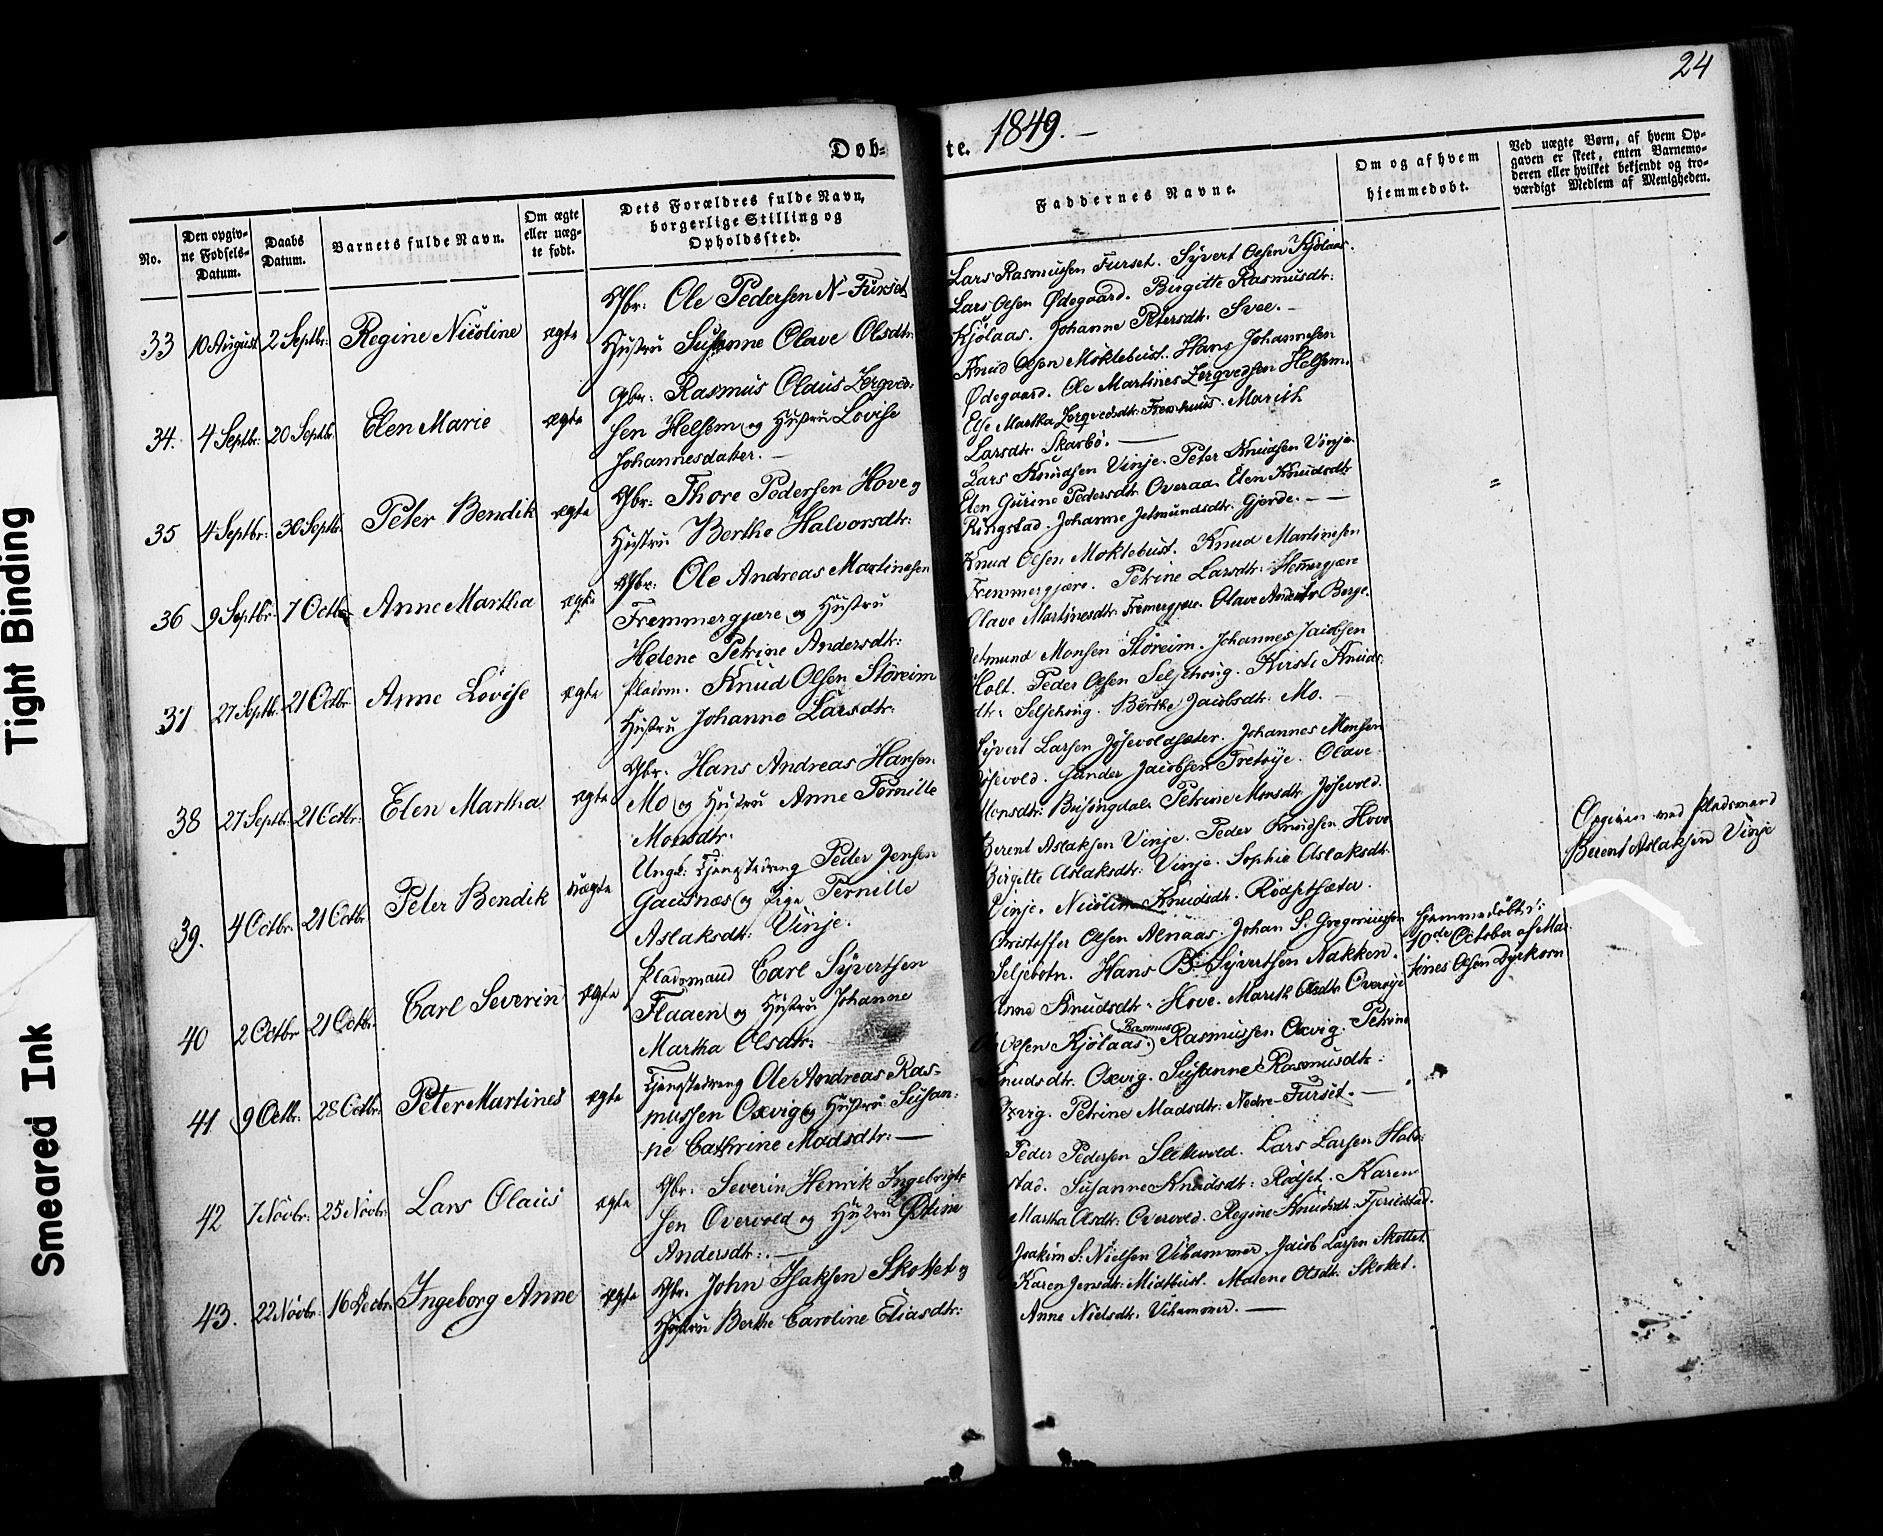 24
Døb-
te. 1849.
No.
Den opgiv-
ne Fødsels-
Datum.
Daabs
Datum.
Barnets fulde Navn.
Om ægte
eller uæg-
te født.
Dets Forældres fulde Navn,
borgerlige Stilling og
Opholdssted.
Faddernes Navne.
Om og af hvem
hiemmedøbt.
Ved uægte Børn, af hvem Op-
gaven er skeet, enten Barnemo-
deren eller hvilket bekjendt og tro-
værdigt Medlem af Menigheden.
33 10 August 2 Septbr: Regine Nicoline ægte
Gbr: Ole Pedersen N-Furset
Hustru Susanne Olave Olsdtr:
Lars Rasmussen Furset. Syvert Olsen Kjølaas.
Lars Olsen Ødegaard. Birgitte Rasmusdtr:
Kjølaas. Johanne Petersdtr. Svee. —
34. 4 Septbr: 20 Septbr: Elen Marie ægte
Gbr: Rasmus Olaus Zergved-
sen Helsem og Hustru Lovise
Johannesdatter. —
Knud Olsen Moktebust. Hans Johannesen
Ødegaard. Ole Martines Zergvedsen Helsem.
Else Martha Zergvedsdtr: Fremhuus. Marith
Larsdtr. Skarbø. —
35 4 Septbr: 30 Septbr: Peter Bendik ægte
Gbr: Thore Pedersen Hove og
Hustru Berthe Halvorsdtr:
Lars Knudsen Vinje. Peter Knudsen Vinje.
Elen Gurine Pedersdtr Overaa. Elen Knudsdtr
Ringstad. Johanne Jetmundsdtr: Gjerde. — —
=
36 9 Septbr: 7 Octbr Anne Martha ægte
Gbr: Ole Andreas Martinesen
Fremmergjære og Hustru
Helene Petrine Andersdtr:
Knud Olsen Moktebust. Knud Martinesen
Fremmergjære. Petrine Larsdtr: Hemergjære
Olave Martinesdtr: Fremergjære. Olave Andersdtr Berge.
37 27 Septbr: 21 Octbr. Anne Lovise ægte
Pladsm. Knud Olsen Støreim
Hustru Johanne Larsdtr:
Jetmund Monsen Støreim. Johannes Jacobsen
Holt. Peder Olsen Seljehoug. Kirsti Knuds-
dtr: Seljehoug. Berthe Jacobsdtr: Mo. —
38 27 Septbr: 21 Octbr: Elen Martha ægte
Gbr: Hans Andreas Hansen
Mo og Hustru Anne Pernille
Monsdtr:
Syvert Larsen Jøsevoldsæter. Johannes Monsen
Jøsevold. Gunder Jacobsen Tretøye. Olave
Monsdtr: Busengdal. Petrine Monsdtr. Jøsevold.
39. 4 Octbr. 21 Octbr. Peter Bendik uægte
Ungk: Tjenestedreng Peder Jensen
Gautnæs og Pige Pernille
Aslaksdtr: Vinje.
Berent Aslaksen Vinje. Peder Knudsen Hove
Birgitte Aslaksdtr: Vinje. Sophie Aslaksdtr.
Vinje. Nicoline Knudsdtr. Rødsetsæter.
Opgiven ved Pladsmand
Berent Aslaksen Vinje
40 2 Octbr 21 Octbr. Carl Severin ægte
Pladsmand Carl Syvertsen
Flaaen og Hustru Johanne
Martha Olsdtr:
Christoffer Olsen Alnaas. Johan S. Gregoriussen
Seljebotn. Hans B. Syvertsen Nakken.
Anne Knudsdtr: Hove. Marith Olsdtr Overøye
Hjemmedøbt d:
10de October af Mar-
tines Olsen Dyrkorn
41 9 Octbr: 28 Octbr: Peter Martines ægte
Tjenestedreng Ole Andreas Ras-
mussen Oxvig og Hustru Susan-
ne Cathrine Madsdtr: —
Olsen Kjølaas. Rasmus Rasmussen Oxvig. Petrine
Knudsdtr. Oxvig. Susanne Rasmusdtr:
Oxvig. Petrine Madsdtr: Nedre-Furset. —
42 7 Novbr: 25 Novbr: Lars Olaus ægte
Gbr: Severin Henrik Ingebrigt-
sen Overvold og Hustru Oline
Andersdtr:. —
Peder Pedersen Slettevold. Lars Larsen Hals-
stad. Susanne Knudsdtr: Rødset. Karen
Martha Olsdtr: Overvold. Regine Knudsdtr: Fjerdstad.
43. 22 Novbr: 16 Decbr: Ingeborg Anne ægte
Gbr. John Isaksen Skottet og
Hustru Berthe Caroline Eliasdtr:
Joakim S: Nielsen Uhammer. Jacob Larsen Skottet.
Karen Jensdtr: Midtbust. Malene Olsdtr: Skottet.
Anne Nielsdtr. Uhammer. —
Tight Binding
Smeared Ink